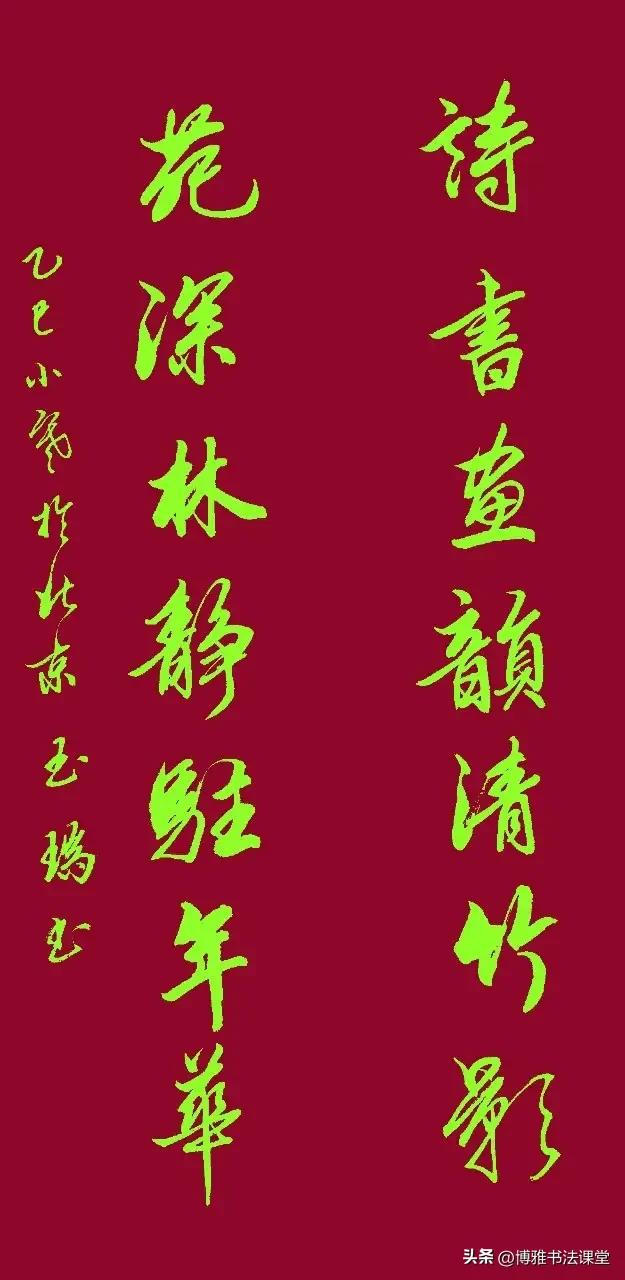 詩書畫韻清竹影
苑深林靜駐年華
乙巳小寒於北京玉瑞书
头条 @博雅书法课堂